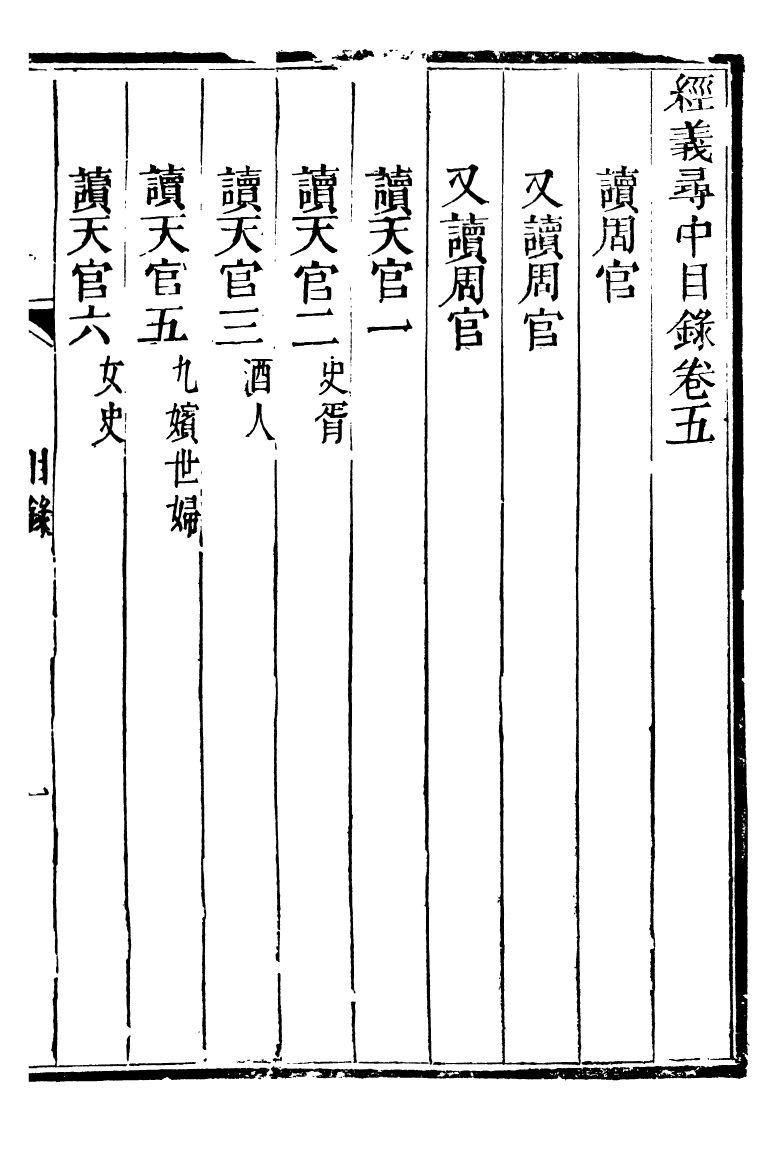 經義尋中目錄卷五
讀周官
又讀周官
又讀周官
讀天官一
讀天官二史胥
讀天官三酒人
讀天官五九嬪世婦
讀天官六女史
目錄
一